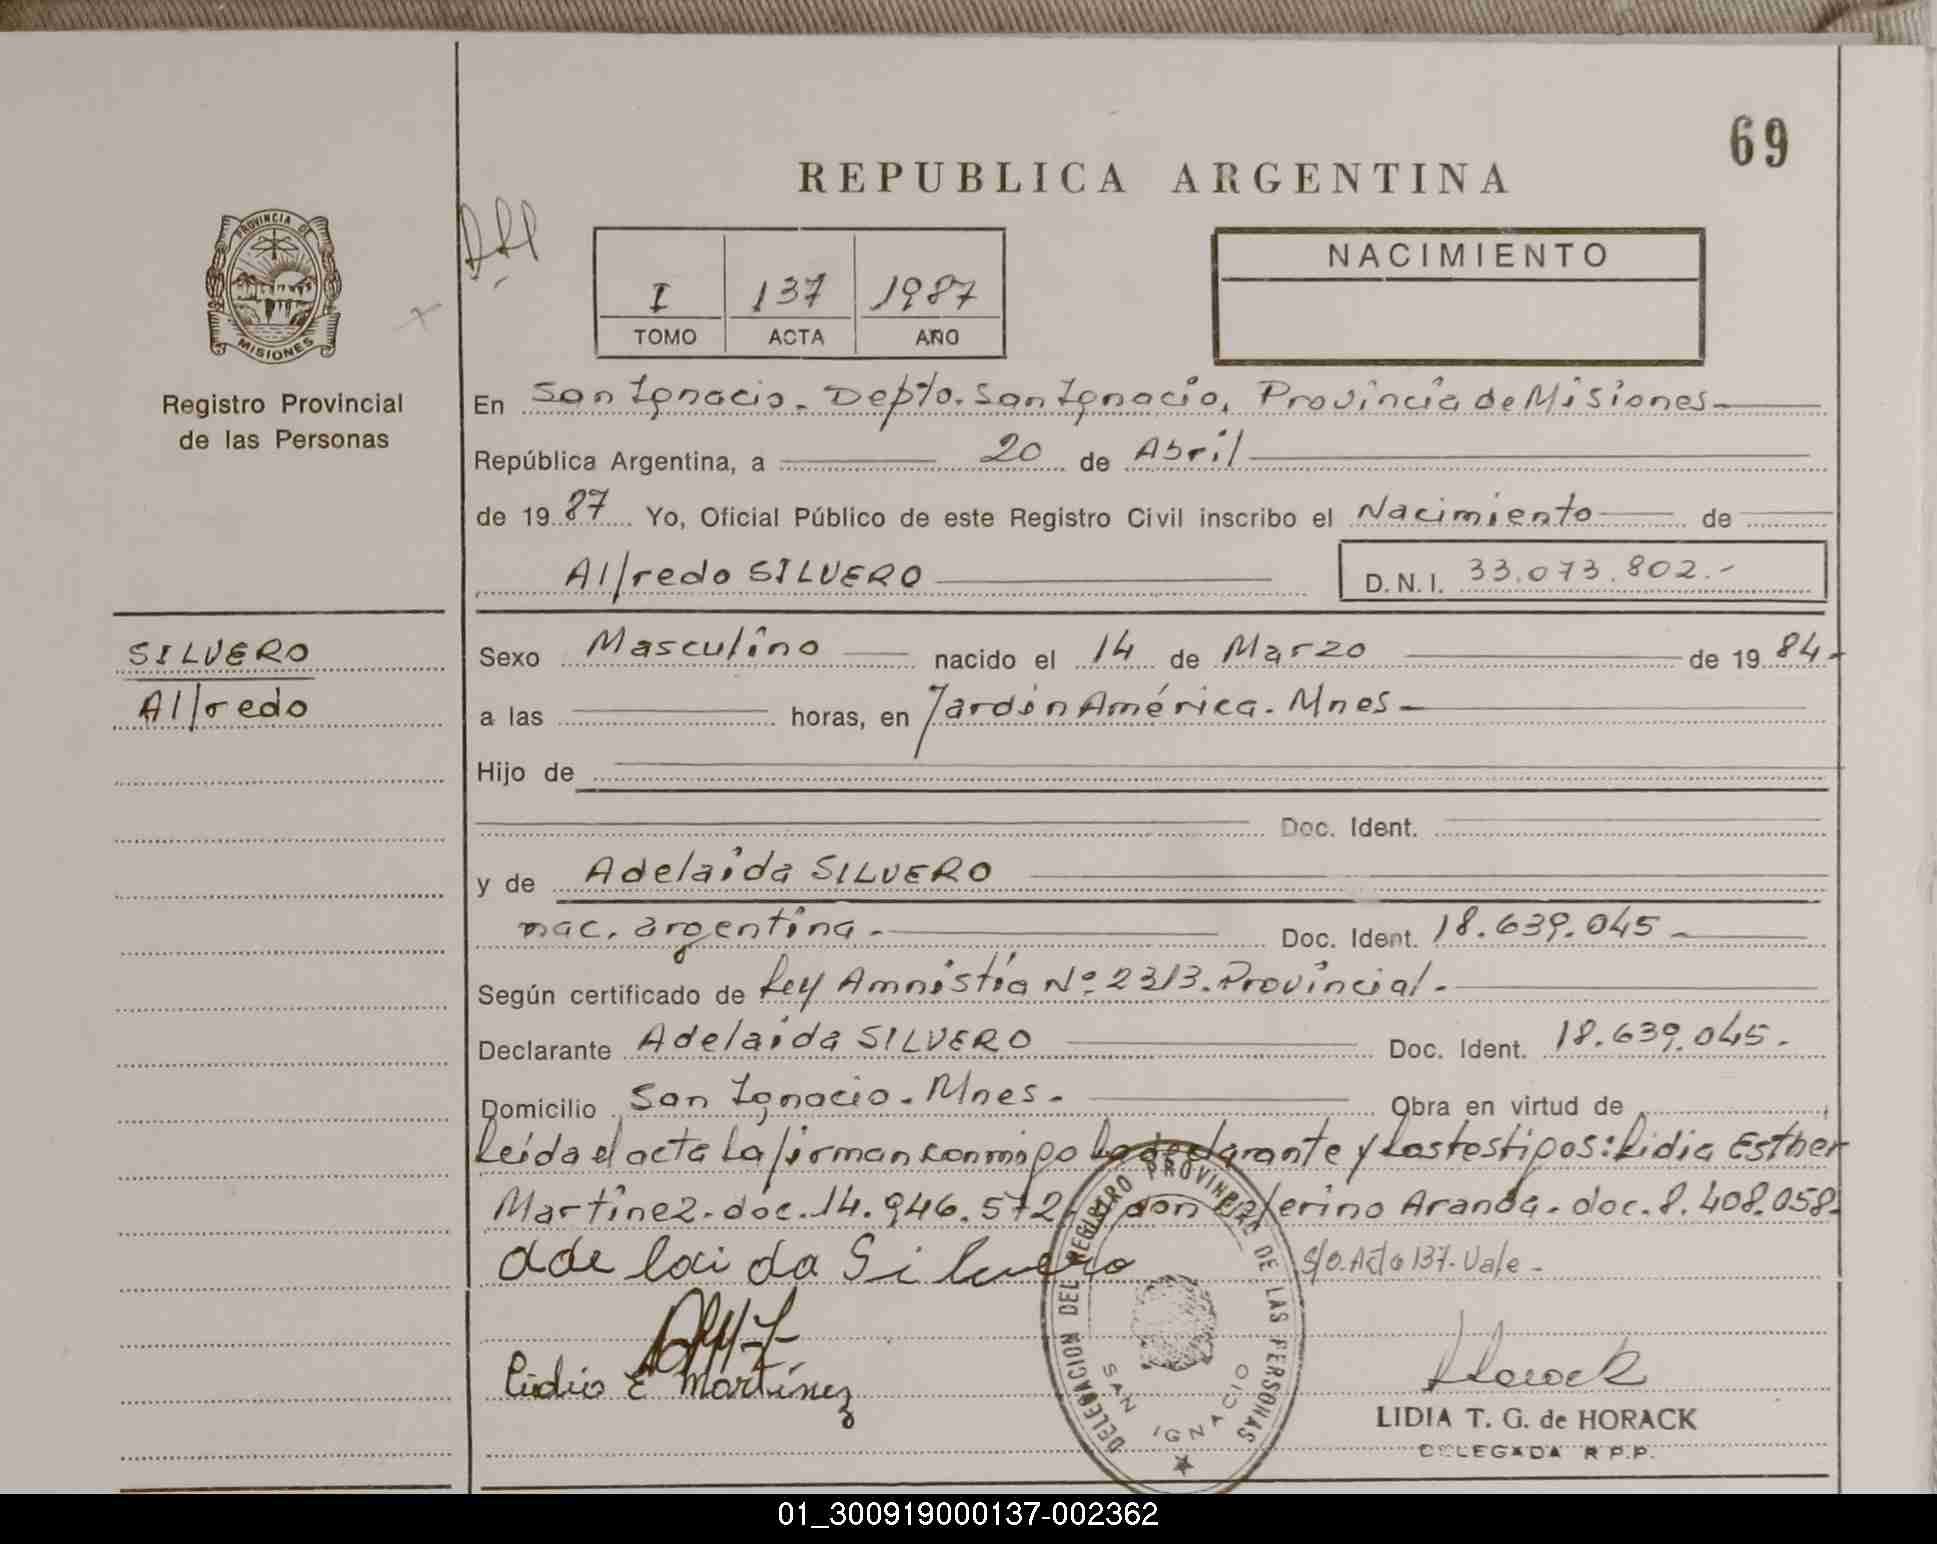 69
REPUBLICA ARGENTINA
PROVINCIA DE
MISIONES
Registro Provincial
de las Personas
I 137 1987
TOMO ACTA AÑO
NACIMIENTO
En San Ignacio. Depto. San Ignacio, Provincia de Misiones
República Argentina, a 20 de Abril
de 1987 Yo, Oficial Público de este Registro Civil inscribo el Nacimiento de
Alfredo SILVERO D.N.I. 33.073.802.-
SILVERO
Alfredo
Sexo Masculino nacido el 14 de Marzo de 1984-
a las horas, en Jardín América. Mnes
Hijo de
Doc. Ident.
y de Adelaida SILVERO
nac. argentina. Doc. Ident. 18.639.045
Según certificado de Ley Amnistía Nº 2313. Provincial.
Declarante Adelaida SILVERO Doc. Ident. 18.639.045.
Domicilio San Ignacio. Mnes. Obra en virtud de
Leída el acta La firman conmigo la declarante y Los testigos: Lidia Esther
Martinez. doc. 14.946.572 don Aranda. doc. 8.408.058.
Adelaida Silvero S/o. Acta 137. Vale-
Lidia E Martínez
DELEGACION DEL REGISTRO PROVINCIAL DE LAS PERSONAS
SAN IGNACIO
Horack
LIDIA T. G. de HORACK
DELEGADA R.P.P.
01_300919000137-002362